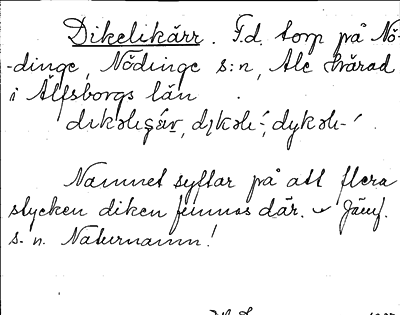 Dikelikärr. F.d. torp på Nö-
-dinge, Nödinge s:n, Ale härad
i Älfsborgs län
dikəligár, dikəli-, dykəli-
Namnet syftar på att flera
stycken diken finnas där. Jämf.
s.n. Naturnamn!